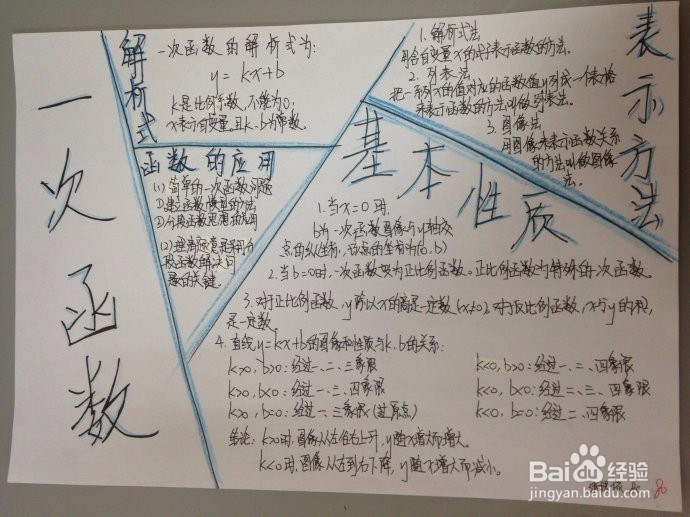 一次函数
解析式
一次函数的解析式为:
y = kx+b
k是比例系数,不能为0;
x表示自变量,且k、b为常数。
函数的应用
(1) 简单的一次函数问题
①建立函数模型的方法
②分段函数思想的应用
(2)
段函数解决问
题的关键。
表示方法
1. 解析式法
用含自变量x的式子表示函数的方法.
2. 列表法
把一系列x的值对应的函数值y列成一个表格
来表示函数的方法叫做列表法。
3. 图像法
用图像来表示函数关系
的方法叫做图像
法。
基本性质
1. 当x=0时,
b为一次函数图像与y轴交
点的纵坐标,该点的坐标为(0,b)
2. 当b=0时,一次函数变为正比例函数。正比例函数为特殊的一次函数。
3. 对于正比例函数,y除以x的商是一定数(x≠0).对于反比例函数,x与y的积
是一定数。
4. 直线y=kx+b的图像和性质与k、b的关系:
k>0, b>0: 经过一、二、三象限
k>0, b<0: 经过一、三、四象限
k>0, b=0: 经过一、三象限(过原点)
k<0, b>0: 经过一、二、四象限
k<0, b<0: 经过二、三、四象限
k<0, b=0: 经过二、四象限
结论: k>0时,图像从左往右上升,y随x增大而增大。
k<0时,图像从左到右下降,y随x增大而减小。
Baidu经验
jingyan.baidu.com